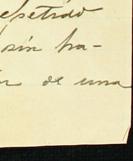 repetido
sin ha-
de una